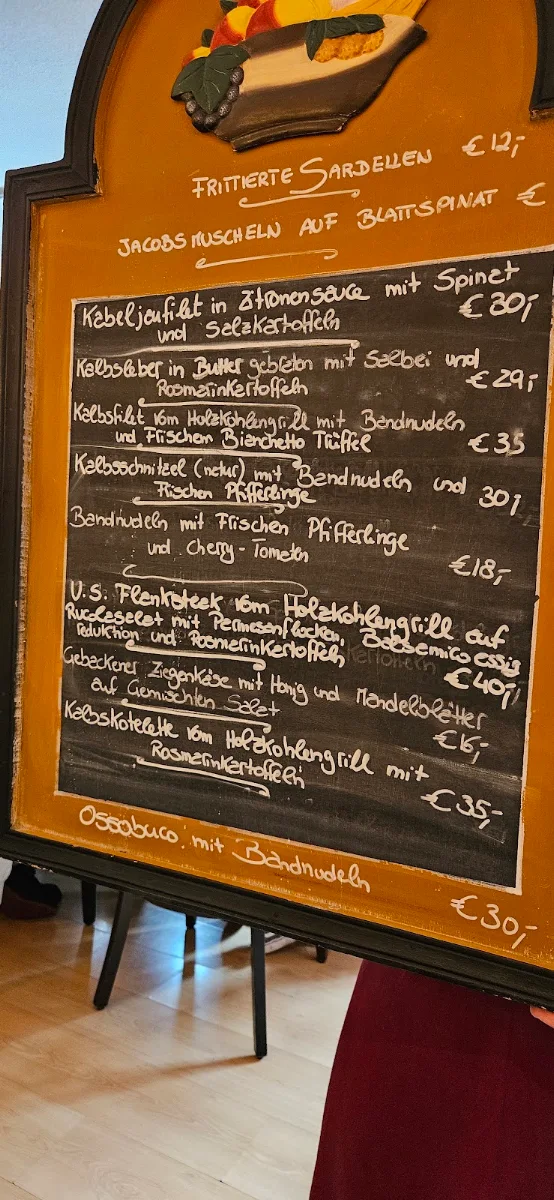 FRITTIERTE SARDELLEN €12,-
JACOBSMUSCHELN AUF BLATTSPINAT €
Kabeljaufilet in Zitronensauce mit Spinat
und Salzkartoffeln €30,-
Kalbsleber in Butter gebraten mit Salbei und
Rosmarinkartoffeln €29,-
Kalbsfilet vom Holzkohlengrill mit Bandnudeln
und Frischen Bianchetto Trüffel €35
Kalbsschnitzel (natur) mit Bandnudeln und
Frischen Pfifferlinge 30,-
Bandnudeln mit Frischen Pfifferlinge
und Cherry-Tomaten €18,-
U.S. Flanksteak vom Holzkohlengrill auf
Rucolasalat mit Parmesanflocken, Balsamico essig
reduktion und Rosmarinkartoffeln €40,-
Gebackener Ziegenkäse mit Honig und Mandelblätter
auf Gemischten Salat €16,-
Kalbskotelette vom Holzkohlengrill mit
Rosmarinkartoffeln €35,-
Ossobuco mit Bandnudeln €30,-